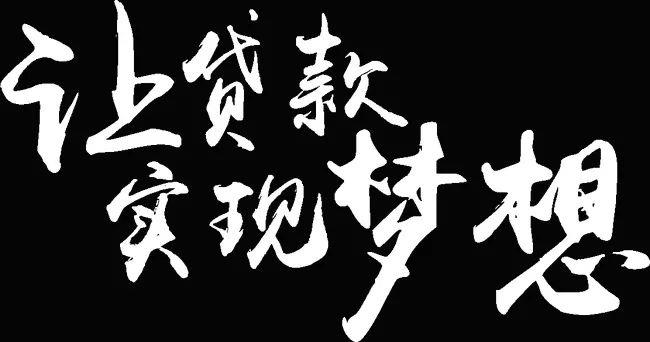 让贷款
实现梦想